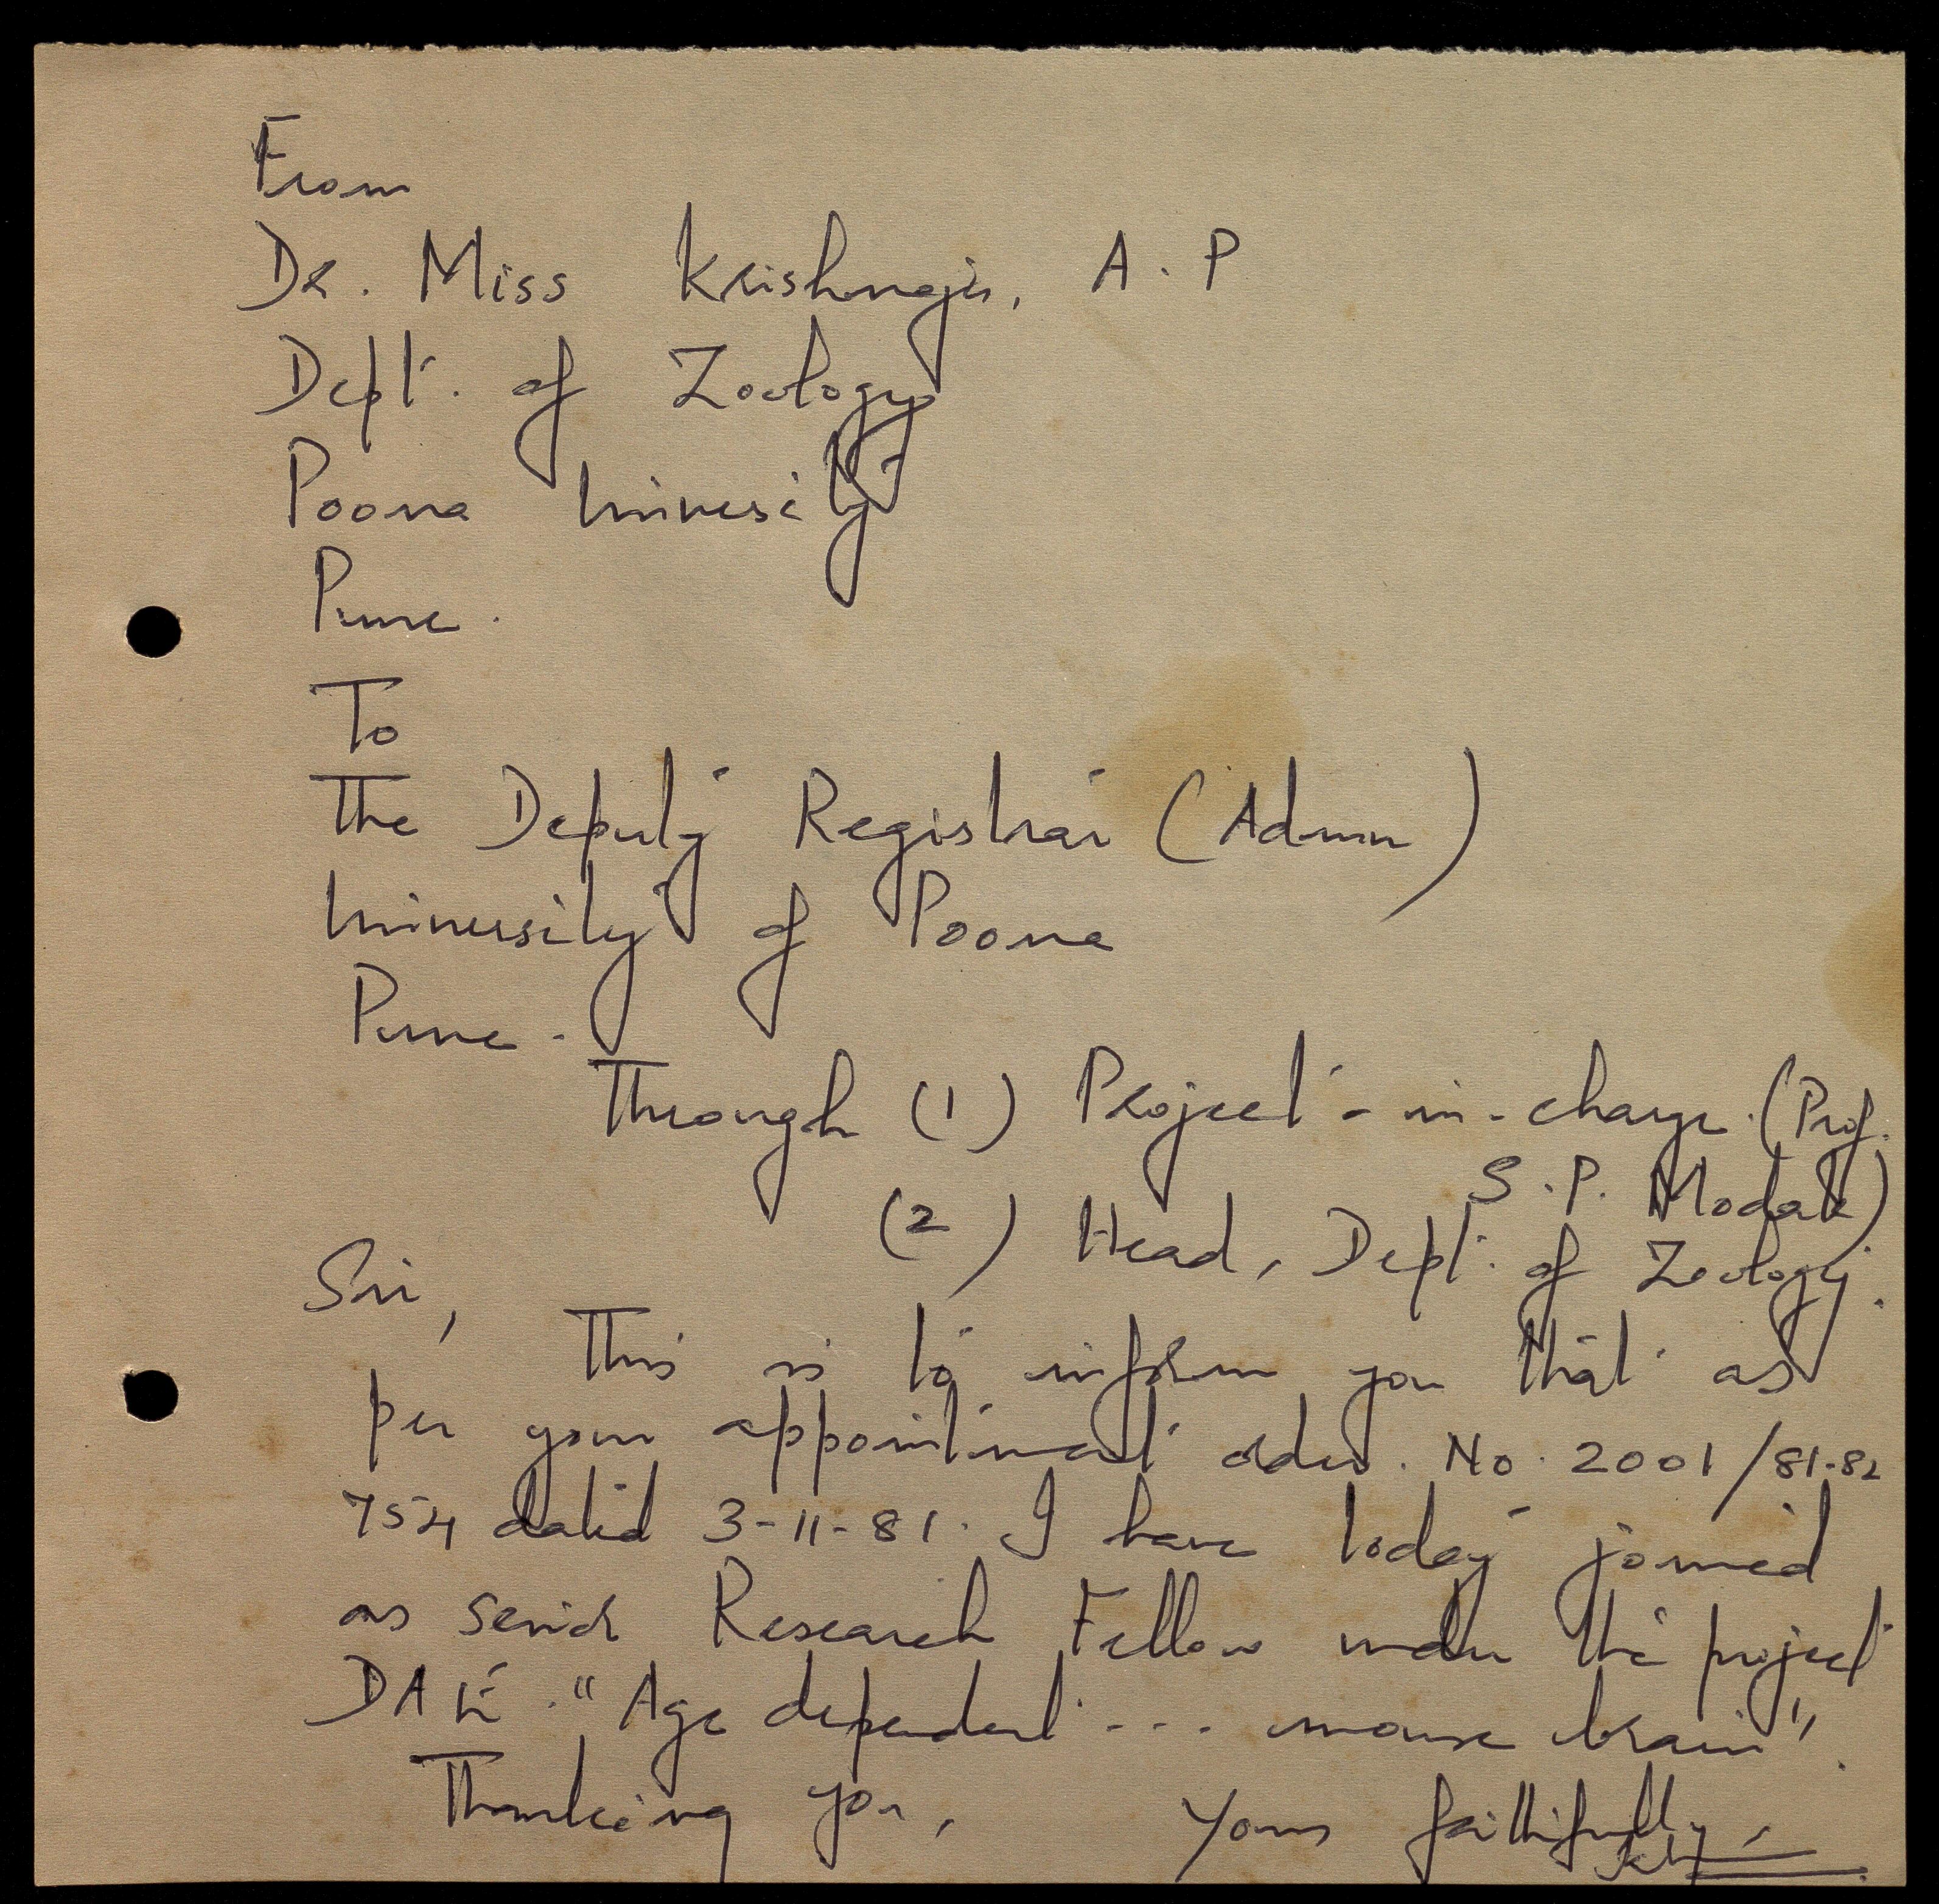 From
Dr. Miss Krishnaji, A. P
Dept. of Zoology
Poona University
Pune.
To
The Deputy Registrar (Admn)
University of Poona
Pune.
Through (1) Project-in-charge (Prof.
S.P. Modak)
(2) Head, Dept. of Zoology.
Sir,
This is to inform you that as
per your appointment order. No. 2001/81-82
754 dated 3-11-81. I have today joined
as Senior Research Fellow under the project
DAE. "Age dependent --- mouse brain".
Thanking you,
Yours faithfully,